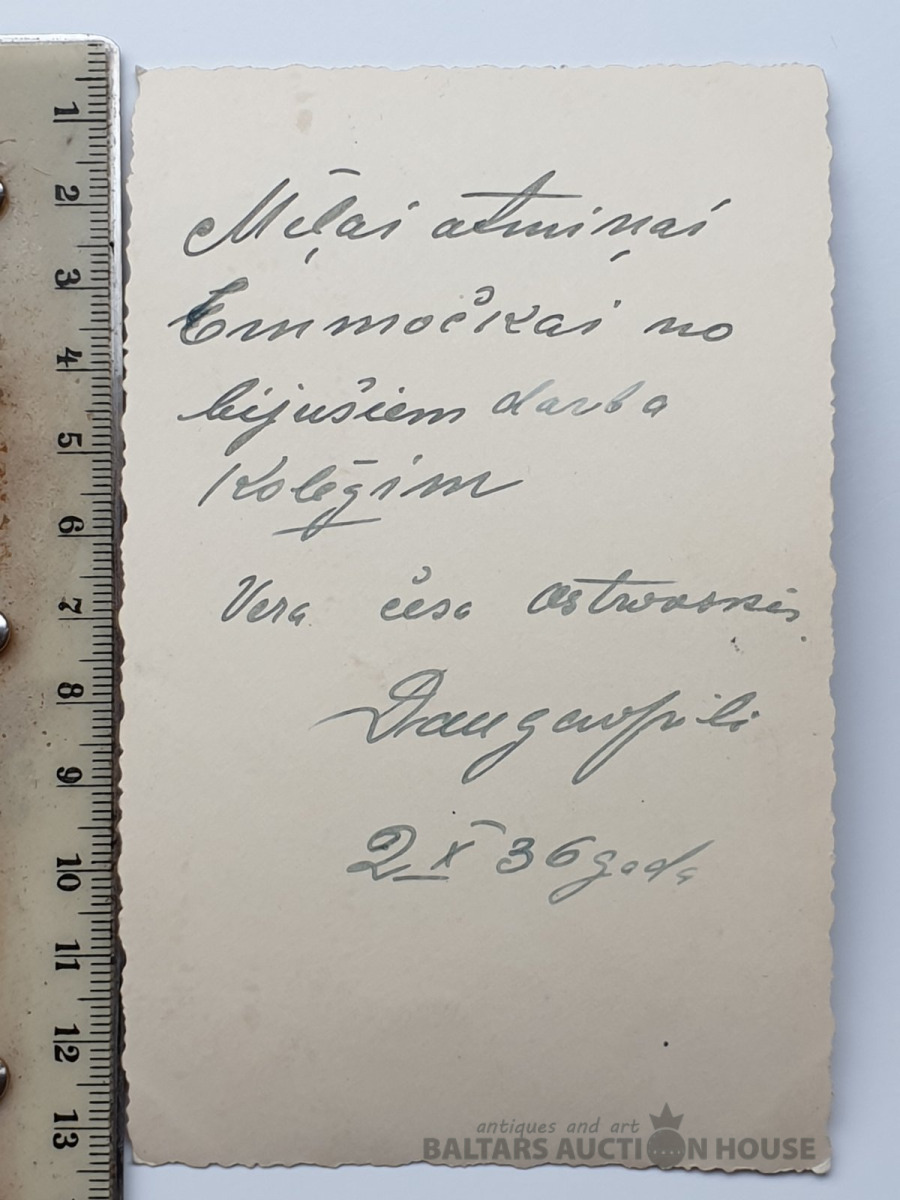 Mīļai atmiņai
Emmočkai no
bijušiem darba
Kolēģim
Vera
Daugavpilī
2 X 36 gada
1
2
3
4
5
6
7
8
9
10
11
12
13
antiques and art
BALTARS AUCTION HOUSE